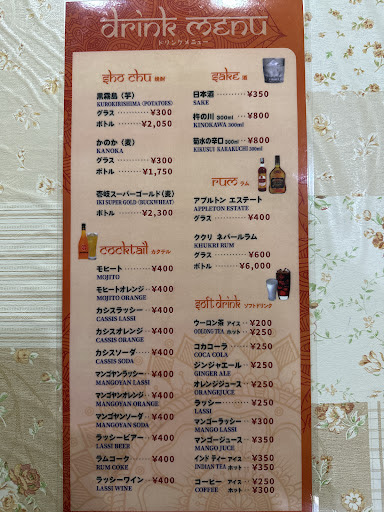 DRINK MENU
ドリンクメニュー
Sho Chu 焼酎
黒霧島（芋）
KUROKIRISHIMA (POTATOES)
グラス ¥300
ボトル ¥2,050
かのか（麦）
KANOKA
グラス ¥300
ボトル ¥1,750
壱岐スーパーゴールド（麦）
IKI SUPER GOLD (BUCKWHEAT)
ボトル ¥2,300
Cocktail カクテル
モヒート ¥400
MOJITO
モヒートオレンジ ¥400
MOJITO ORANGE
カシスラッシー ¥400
CASSIS LASSI
カシスオレンジ ¥400
CASSIS ORANGE
カシスソーダ ¥400
CASSIS SODA
マンゴヤンラッシー ¥400
MANGOYAN LASSI
マンゴヤンオレンジ ¥400
MANGOYAN ORANGE
マンゴヤンソーダ ¥400
MANGOYAN SODA
ラッシービアー ¥400
LASSI BEER
ラムコーク ¥400
RUM COKE
ラッシーワイン ¥400
LASSI WINE
Sake 酒
日本酒 ¥350
SAKE
杵の川 300ml ¥800
KINOKAWA 300ml
菊水の辛口 300ml ¥800
KIKUSUI KARAKUCHI 300ml
Rum ラム
アプルトン エステート
APPLETON ESTATE
グラス ¥400
ククリ ネパールラム
KHUKRI RUM
グラス ¥600
ボトル ¥6,000
Soft Drink ソフトドリンク
ウーロン茶 アイス ¥200
OOLONG TEA ホット ¥250
コカコーラ ¥250
COCA COLA
ジンジャエール ¥250
GINGER ALE
オレンジジュース ¥250
ORANGEJUCE
ラッシー ¥250
LASSI
マンゴーラッシー ¥300
MANGO LASSI
マンゴージュース ¥350
MANGO JUCE
インド ティー アイス ¥350
INDIAN TEA ホット ¥350
コーヒー アイス ¥250
COFFEE ホット ¥300